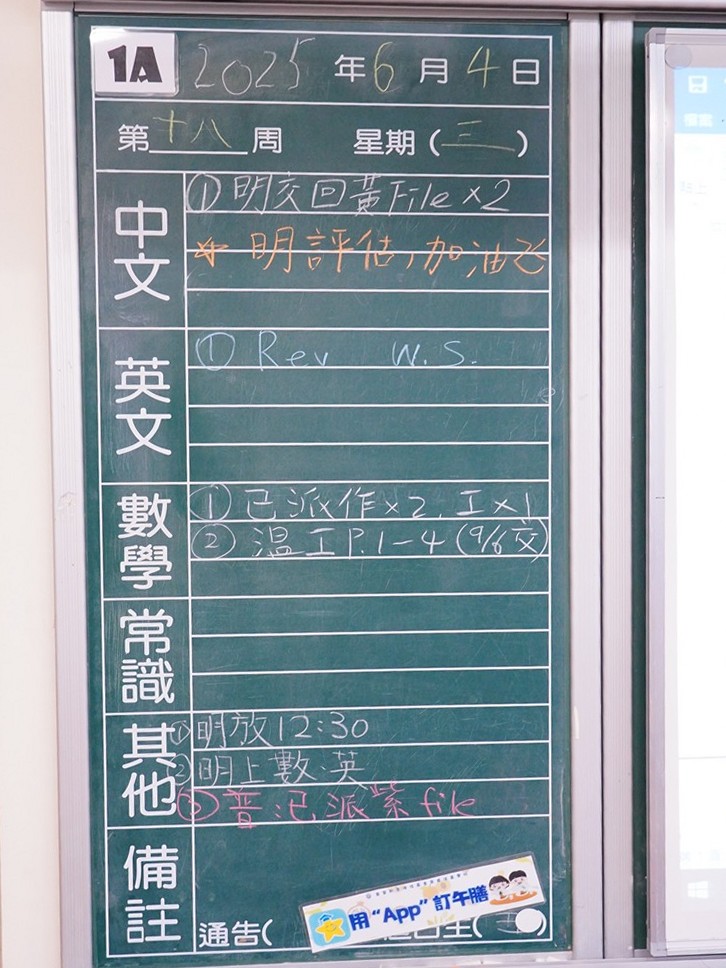 1A 2025年6月4日
第十八周 星期(三)
中文
① 明交回黃File×2
☆ 明評估,加油
英文
① Rev W.S.
數學
① 已派作×2,工×1
② 温工P.1-4(9/6交)
常識
其他
① 明放12:30
② 明上數、英
③ 普:已派紫file
備註
用“App”訂午膳
通告(